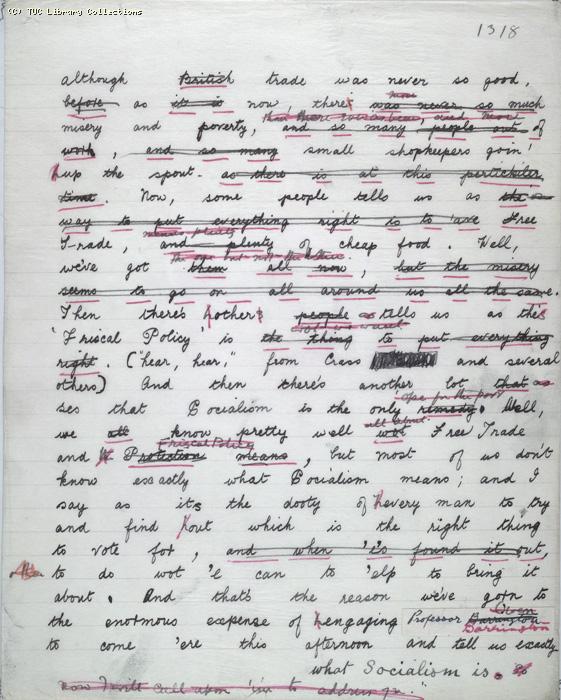 (C) TUC Library Collections
1318
although British trade was never so good,
before as it is now, there's was never so much
more
misery and poverty, and so many people out of
work, and so many small shopkeepers goin'
hup the spout. as there is at this pertickiler
time. Now, some people tells us as the
way to put everything right is to 'ave Free
Trade, and plenty of cheap food. Well,
we've got them all now, but the misery
seems to go on all around us all the same.
Then there's hother people tells us as the
'Friscal Policy' is the thing to put everything
right. ("hear, hear," from Crass and several
others) And then there's another lot that as
ses that Socialism is the only remedy. Well,
we all know pretty well wot Free Trade
Friscal Policy
and Protection means, but most of us don't
know exactly what Socialism means; and I
say as its the dooty of hevery man to try
and find hout which is the right thing
to vote for, and when 'e's found it out,
to do wot 'e can to 'elp to bring it
about. And that's the reason we've gorn to
the enormous expense of hengaging Professor Barrington
Barrington
to come 'ere this afternoon and tell us exactly
what Socialism is.
now I will call upon 'im to address you."